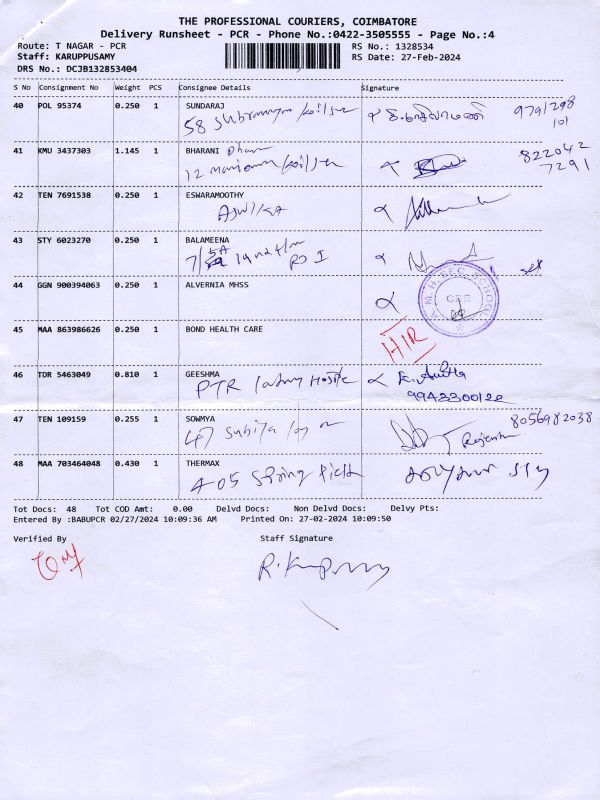 THE PROFESSIONAL COURIERS, COIMBATORE
Delivery Runsheet - PCR - Phone No.:0422-3505555 - Page No.:4
Route: T NAGAR - PCR RS No.: 1328534
Staff: KARUPPUSAMY RS Date: 27-Feb-2024
DRS No.: DCJB132853404
S No Consignment No Weight PCS Consignee Details Signature
40 POL 95374 0.250 1 SUNDARAJ 9791298
58 101
41 KMU 3437303 1.145 1 BHARANI 822042
12 7291
42 TEN 7691538 0.250 1 ESWARAMOOTHY
43 STY 6023270 0.250 1 BALAMEENA
44 GGN 900394063 0.250 1 ALVERNIA MHSS
A.M.H. SEC. SCHOOL
CBE
45 MAA 863986626 0.250 1 BOND HEALTH CARE
HIR
46 TDR 5463049 0.810 1 GEESHMA
PTR Hostle
47 TEN 109159 0.255 1 SOWMYA 8056982038
47 Rajesh
48 MAA 703464048 0.430 1 THERMAX
405 Spring Field
Tot Docs: 48 Tot COD Amt: 0.00 Delvd Docs: Non Delvd Docs: Delvy Pts:
Entered By :BABUPCR 02/27/2024 10:09:36 AM Printed On: 27-02-2024 10:09:50
Verified By Staff Signature